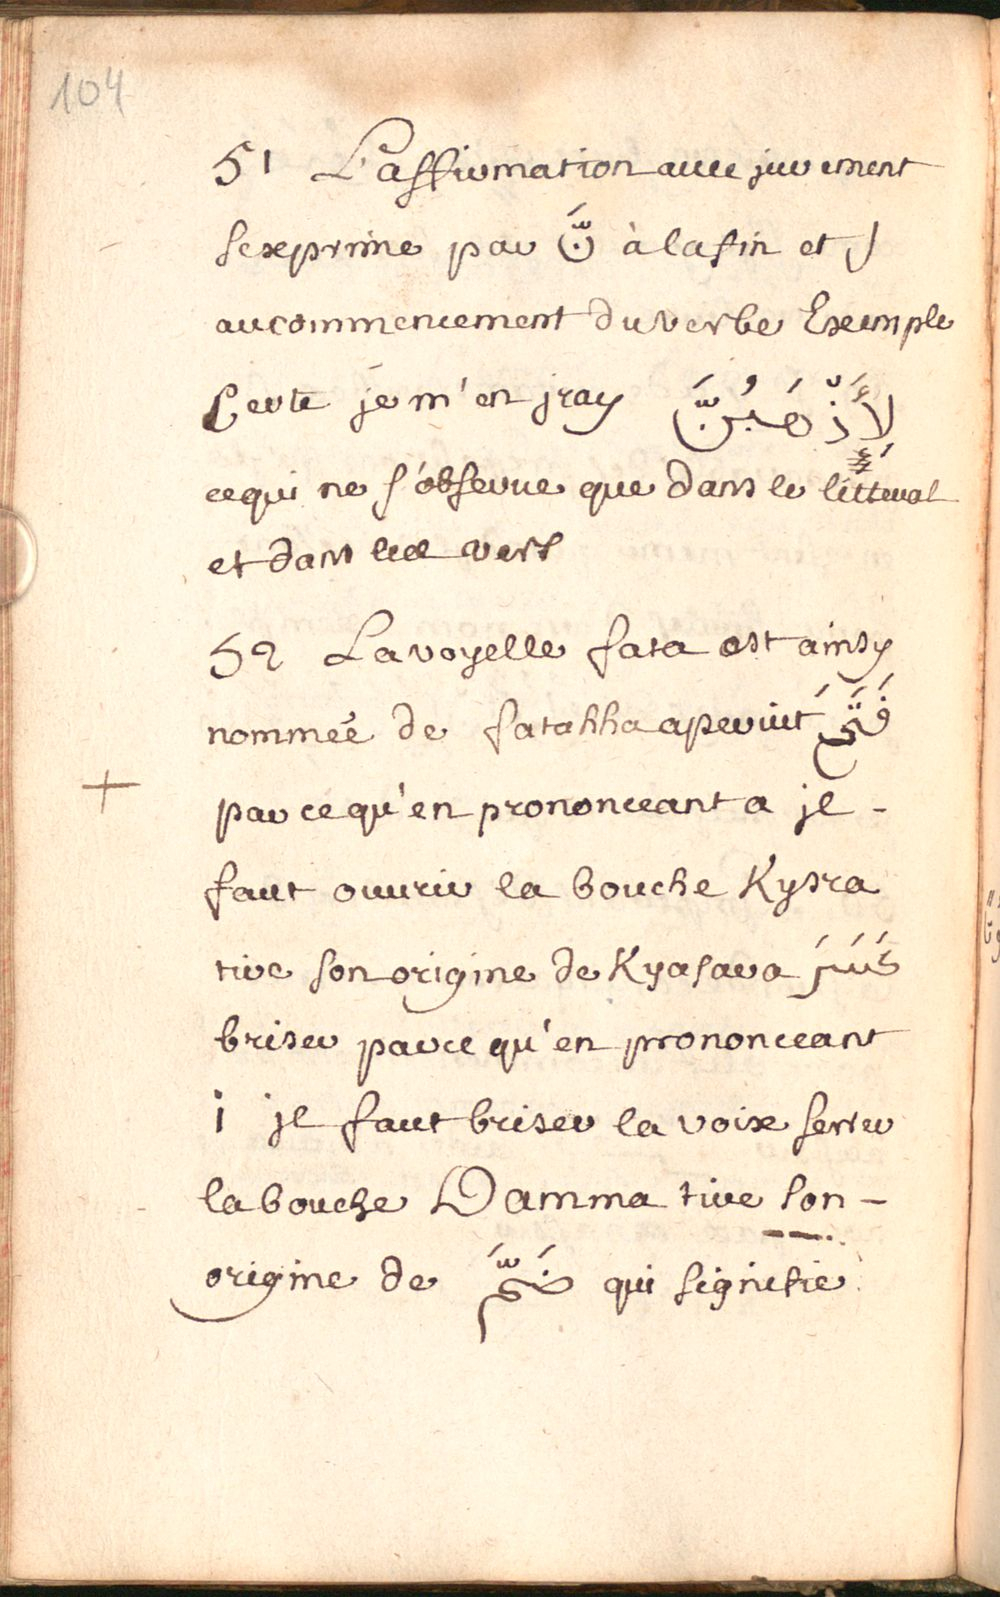 104
51 L'affirmation avec jurement
sexprime par نَّ à la fin et ل
au commencement du verbe Exemple
Certe je m'en jray لَأَذْهَبُنَّ
ce qui ne s'observe que dans le litteral
et dans les vers
52 La voyelle fata est ainsy
nommée de fatahha aperuit فَتَحَ
par ce qu'en prononceant a jl -
faut ouurir la bouche Kysra
tire son origine de Kyasara كَسَرَ
briser parce qu'en prononceant
i jl faut briser la voix serrer
la bouche Damma tire son -
origine de ضَمَّ qui signifie